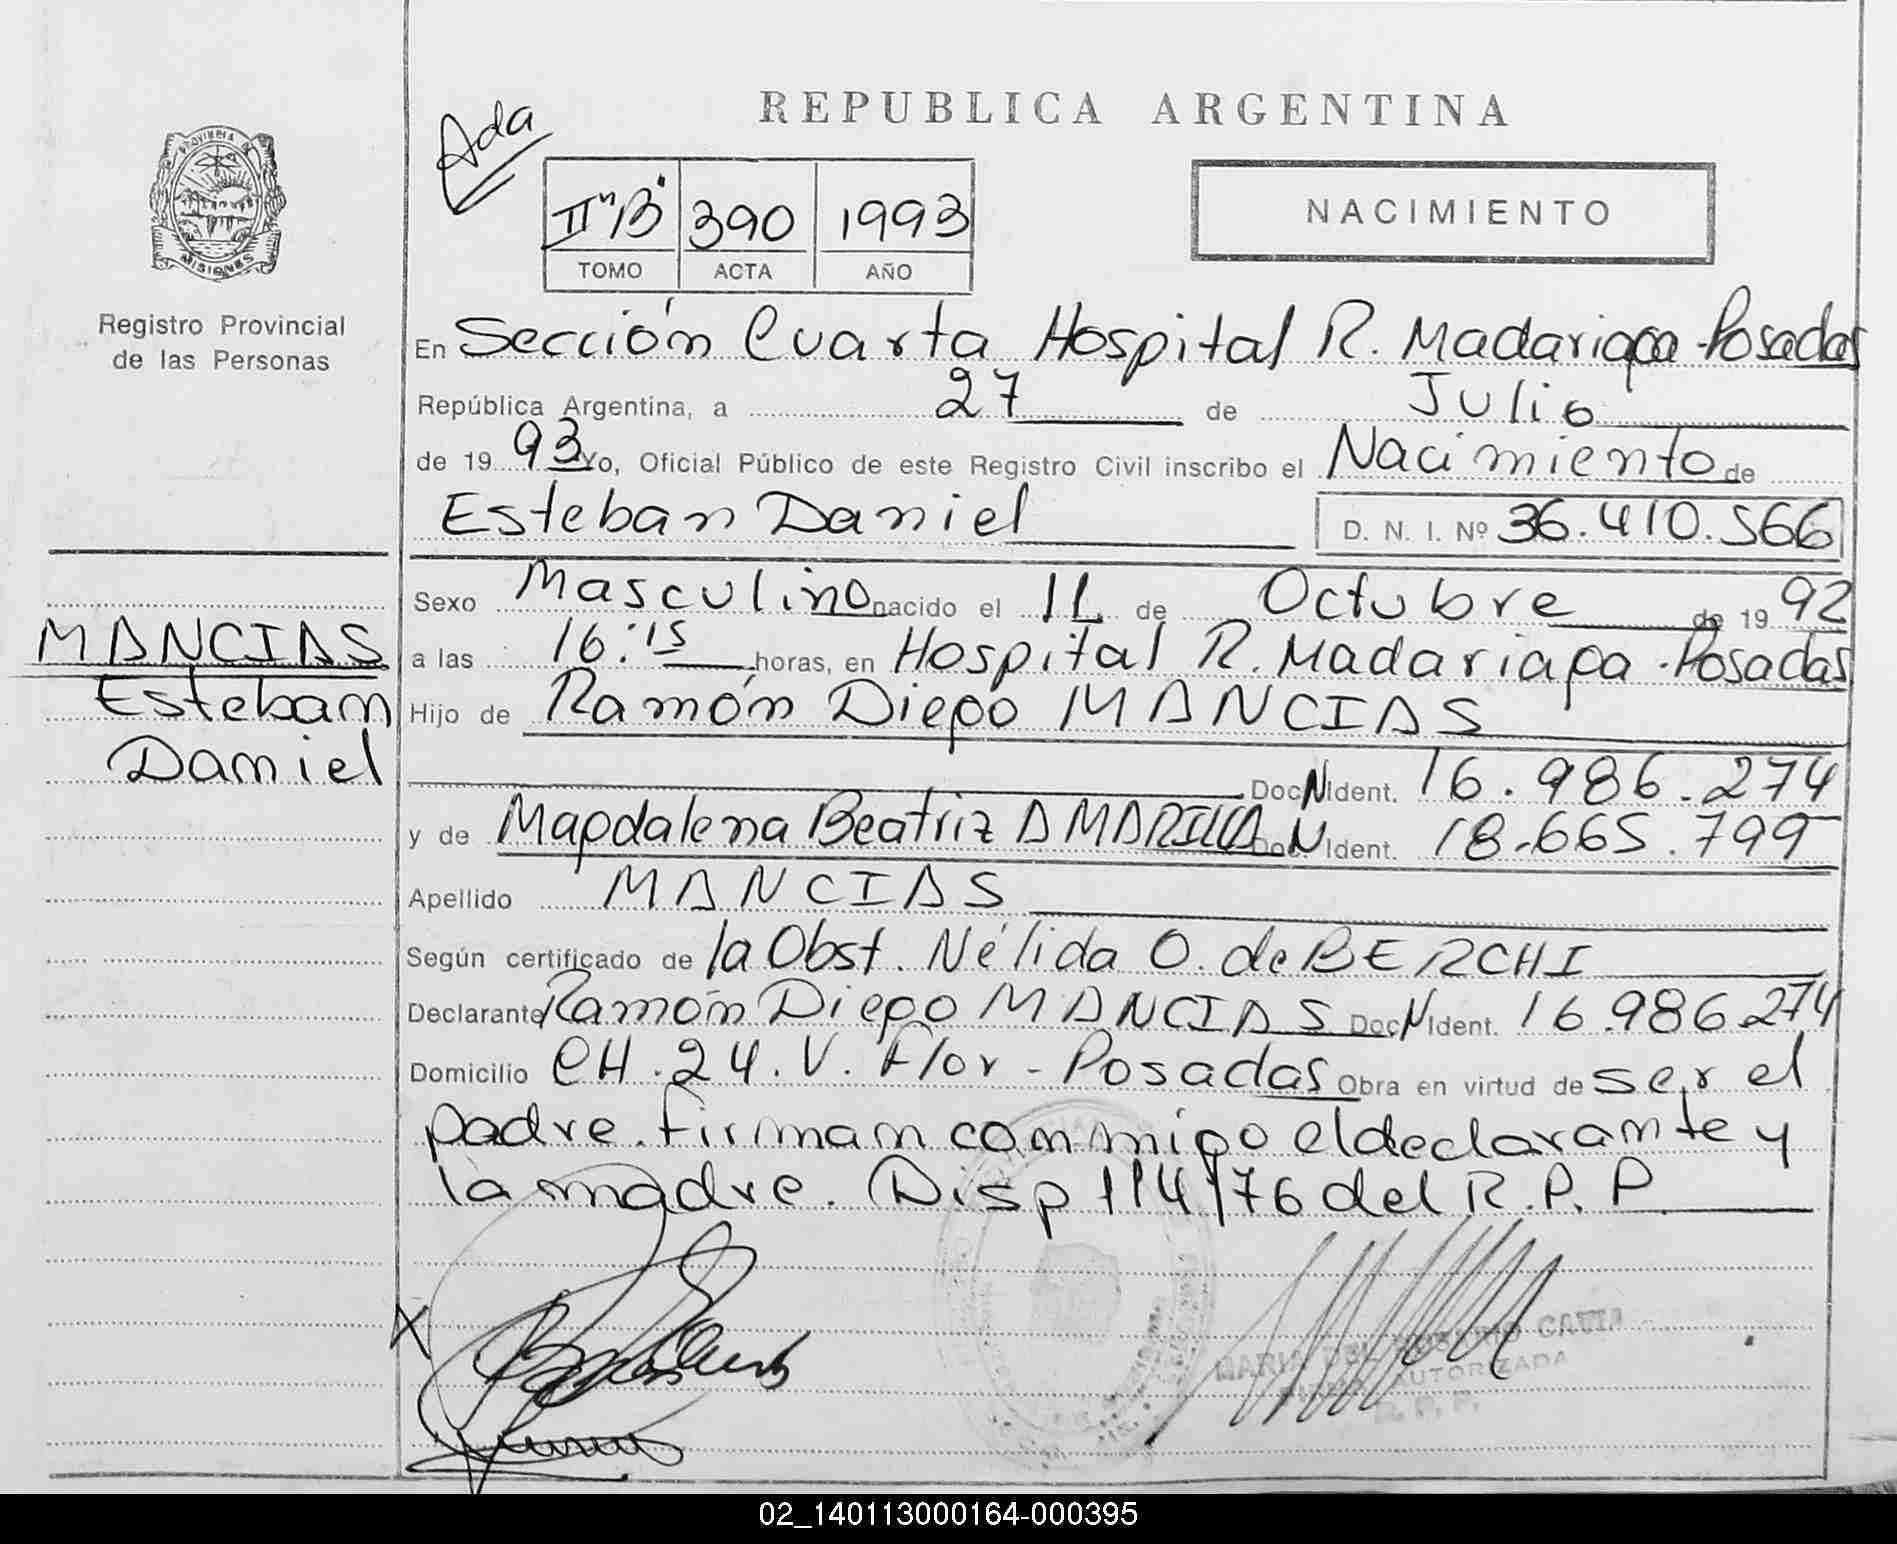 REPUBLICA ARGENTINA
Ada
II "B" 390 1993
TOMO ACTA AÑO
NACIMIENTO
PROVINCIA DE
MISIONES
Registro Provincial
de las Personas
En Sección Cuarta Hospital R. Madariaga - Posadas
República Argentina, a 27 de Julio
de 19 93 Yo, Oficial Público de este Registro Civil inscribo el Nacimiento de
Esteban Daniel D. N. I. Nº 36.410.566
Sexo Masculino nacido el 11 de Octubre de 19 92
MANCIAS
Esteban
Daniel
a las 16:15 horas, en Hospital R. Madariaga - Posadas
Hijo de Ramón Diego MANCIAS
Doc. N Ident. 16.986.274
y de Magdalena Beatriz AMARILLA Doc. N Ident. 18.665.799
Apellido MANCIAS
Según certificado de la Obst. Nélida O. de BERCHI
Declarante Ramón Diego MANCIAS Doc. N Ident. 16.986.274
Domicilio CH. 24. V. Flor - Posadas Obra en virtud de ser el
padre. Firman conmigo el declarante y
la madre. Disp 114/76 del R.P.P.
X
MARIA DEL ROSARIO
FIRMA AUTORIZADA
R. P. P.
02_140113000164-000395